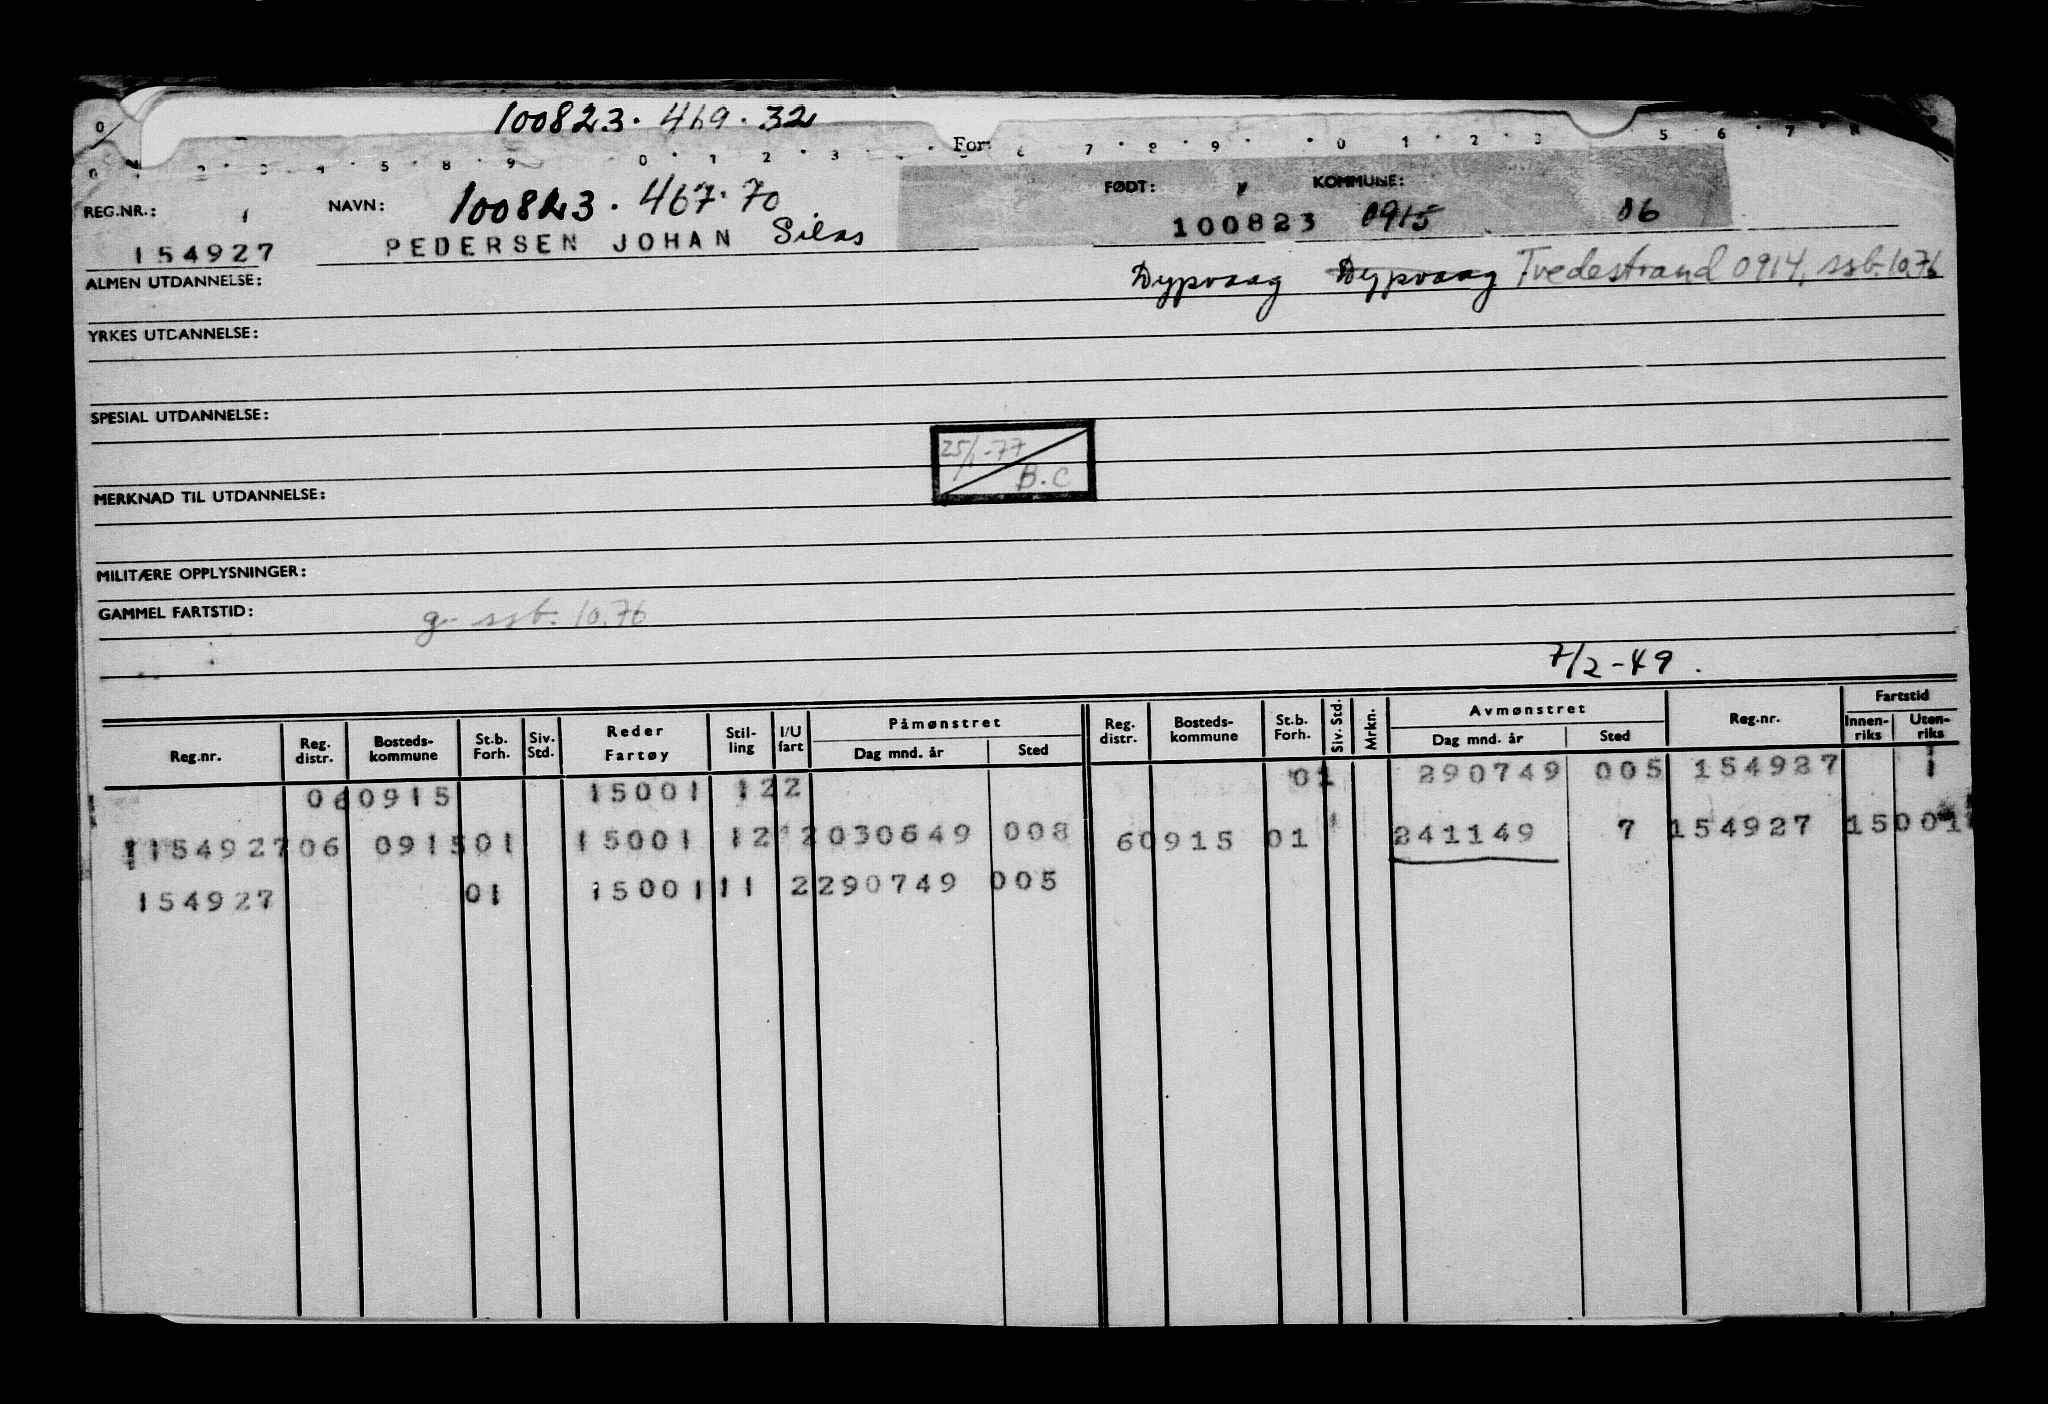 100823.469.32
For:
REG.NR.: NAVN: 100823.467.70 FØDT: KOMMUNE:
154927 PEDERSEN JOHAN Silas 100823 0915 06
ALMEN UTDANNELSE: Dypvaag Dypvaag Tvedestrand 0914, ssb. 10.76
YRKES UTDANNELSE:
SPESIAL UTDANNELSE:
25/1-77
B.C
MERKNAD TIL UTDANNELSE:
MILITÆRE OPPLYSNINGER:
GAMMEL FARTSTID: g- ssb. 10.76
7/2-49.
Reg.nr. Reg. distr. Bosteds-kommune St.b. Forh. Siv. Std. Reder Fartøy Stil-ling I/U fart Påmønstret Dag mnd. år Sted Reg. distr. Bosteds-kommune St.b. Forh. Siv. Std. Mrkn. Avmønstret Dag mnd. år Sted Reg.nr. Fartstid Innen-riks Uten-riks
060915 15001 122 01 290749 005 154927 1
1154927 06 0915 01 15001 12 2030649 008 60915 01 241149 7 154927 15001
154927 01 15001 11 2290749 005